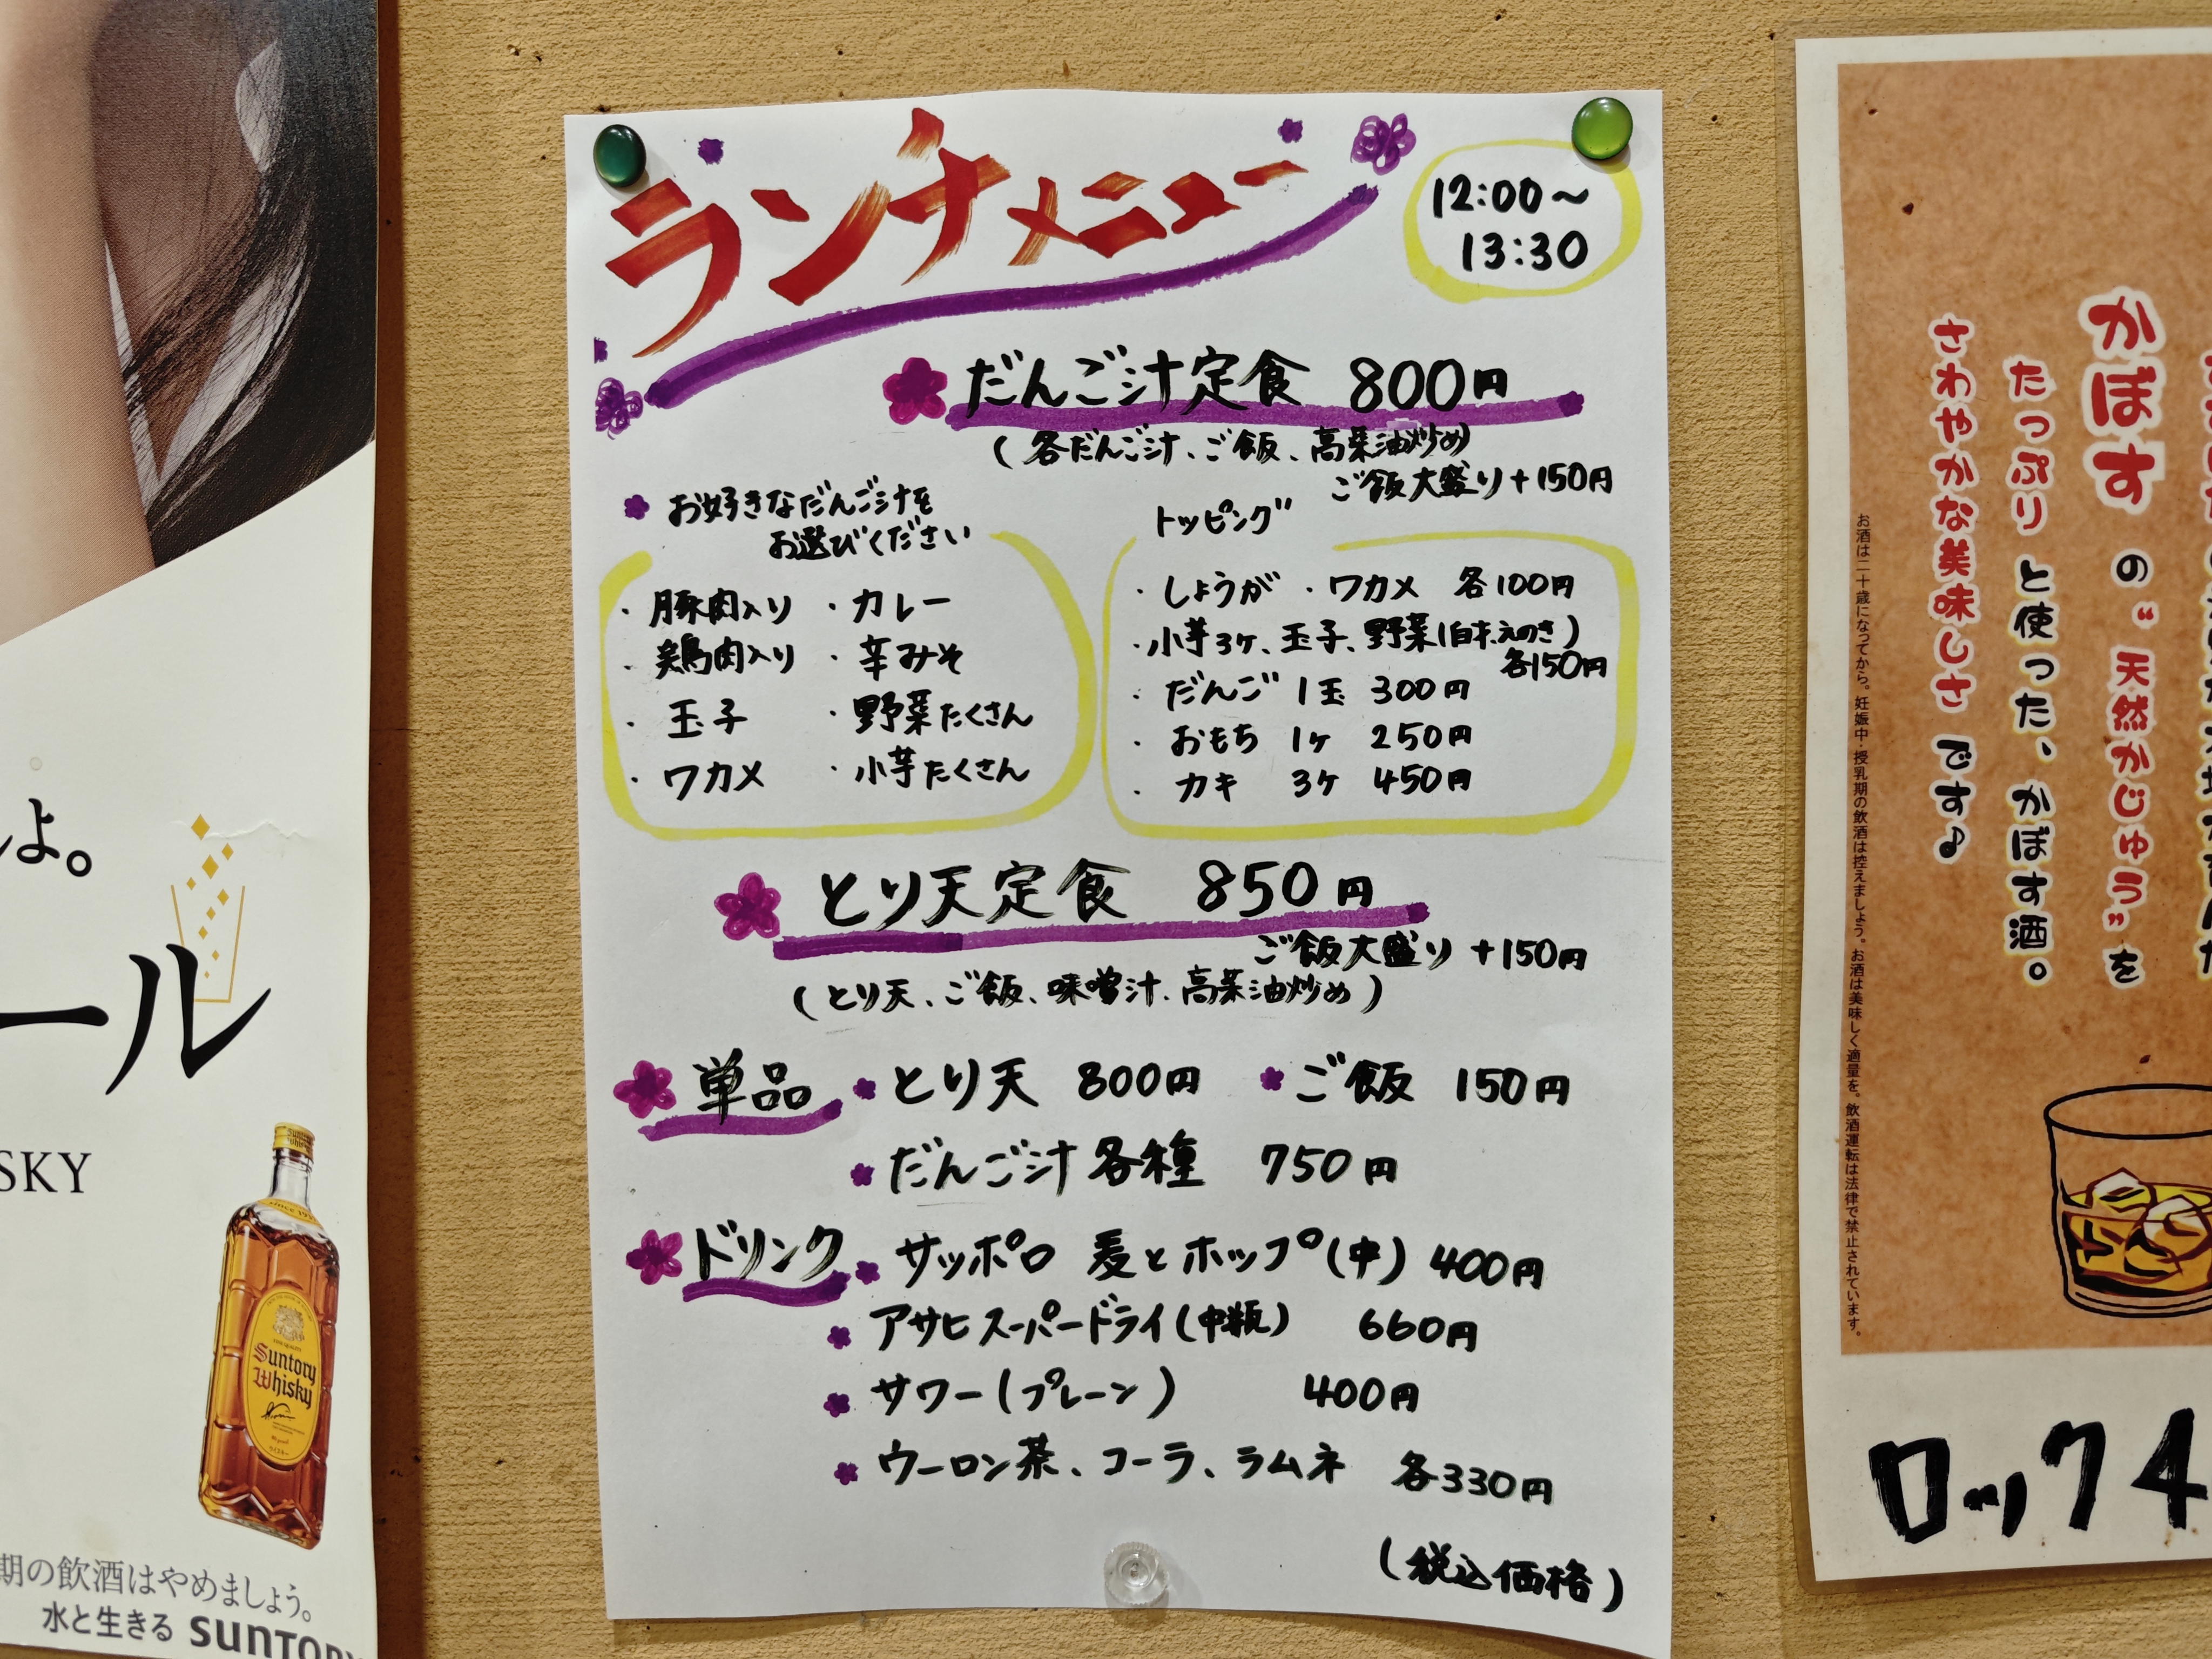 ランチメニュー
12:00〜
13:30
だんご汁定食 800円
(各だんご汁、ご飯、高菜油炒め)
ご飯大盛り+150円
お好きなだんご汁を
お選びください
・豚肉入り ・カレー
・鶏肉入り ・辛みそ
・玉子 ・野菜たくさん
・ワカメ ・小芋たくさん
トッピング
・しょうが ・ワカメ 各100円
・小芋3ヶ、玉子、野菜(白ネ.えのき)
各150円
・だんご 1玉 300円
・おもち 1ヶ 250円
・カキ 3ヶ 450円
とり天定食 850円
ご飯大盛り +150円
(とり天、ご飯、味噌汁、高菜油炒め)
単品 とり天 800円 ご飯 150円
だんご汁各種 750円
ドリンク サッポロ 麦とホップ(中) 400円
アサヒスーパードライ(中瓶) 660円
サワー(プレーン) 400円
ウーロン茶、コーラ、ラムネ 各330円
(税込価格)
よ。
ール
SKY
since 19
Suntory
Whisky
ウイスキー
期の飲酒はやめましょう。
水と生きる SUNTORY
かぼす の“天然かじゅう”を
たっぷり と使った、かぼす酒。
さわやかな美味しさ です♪
お酒は二十歳になってから。妊娠中・授乳期の飲酒は控えましょう。お酒は美味しく適量を。飲酒運転は法律で禁止されています。
ロック4